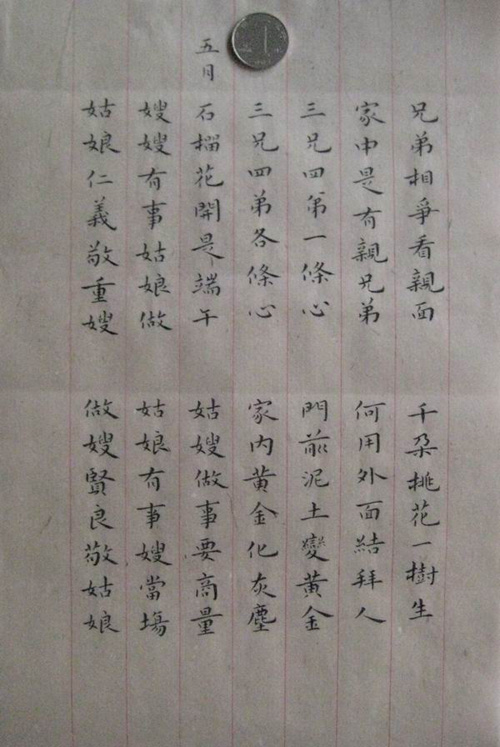 兄弟相爭看親面 千朵桃花一樹生
家中是有親兄弟 何用外面結拜人
三兄四弟一條心 門前泥土變黃金
三兄四弟各條心 家内黃金化灰塵
五月
石榴花開是端午 姑嫂做事要商量
嫂嫂有事姑娘做 姑娘有事嫂當塲
姑娘仁義敬重嫂 做嫂賢良敬姑娘
1